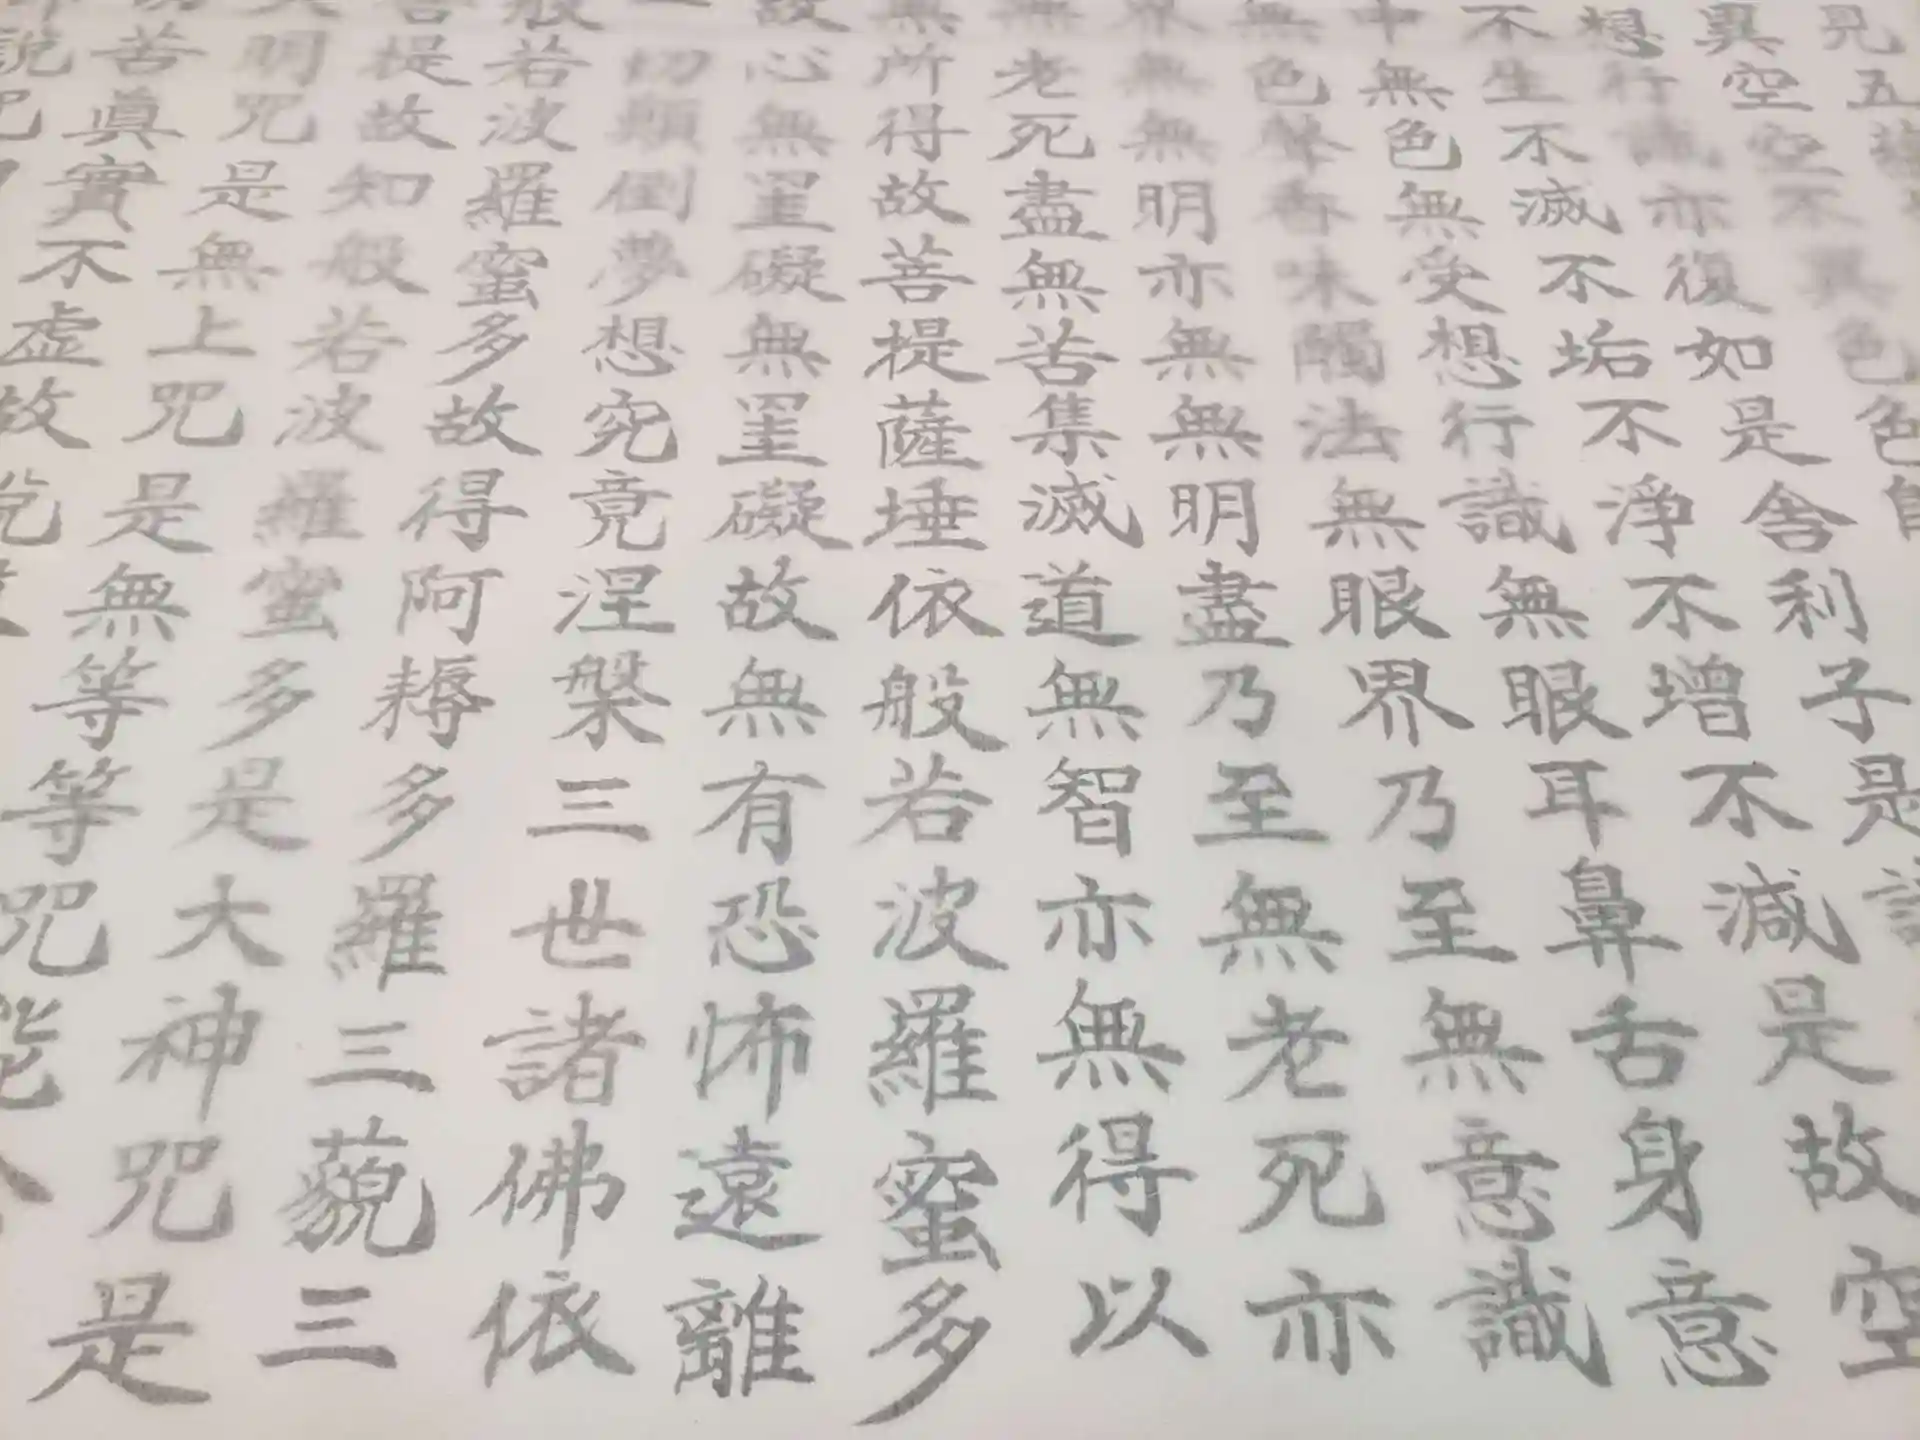 見五
異空空不異色色
想行識亦復如是舍利子是
不生不滅不垢不淨不增不減是故空
中無色無受想行識無眼耳鼻舌身意
無色聲香味觸法無眼界乃至無意識
界無無明亦無無明盡乃至無老死亦
無老死盡無苦集滅道無智亦無得以
無所得故菩提薩埵依般若波羅蜜多
故心無罣礙無罣礙故無有恐怖遠離
一切顚倒夢想究竟涅槃三世諸佛依
般若波羅蜜多故得阿耨多羅三藐三
菩提故知般若波羅蜜多是大神咒是
明咒是無上咒是無等等咒能
苦眞實不虛故說
說咒